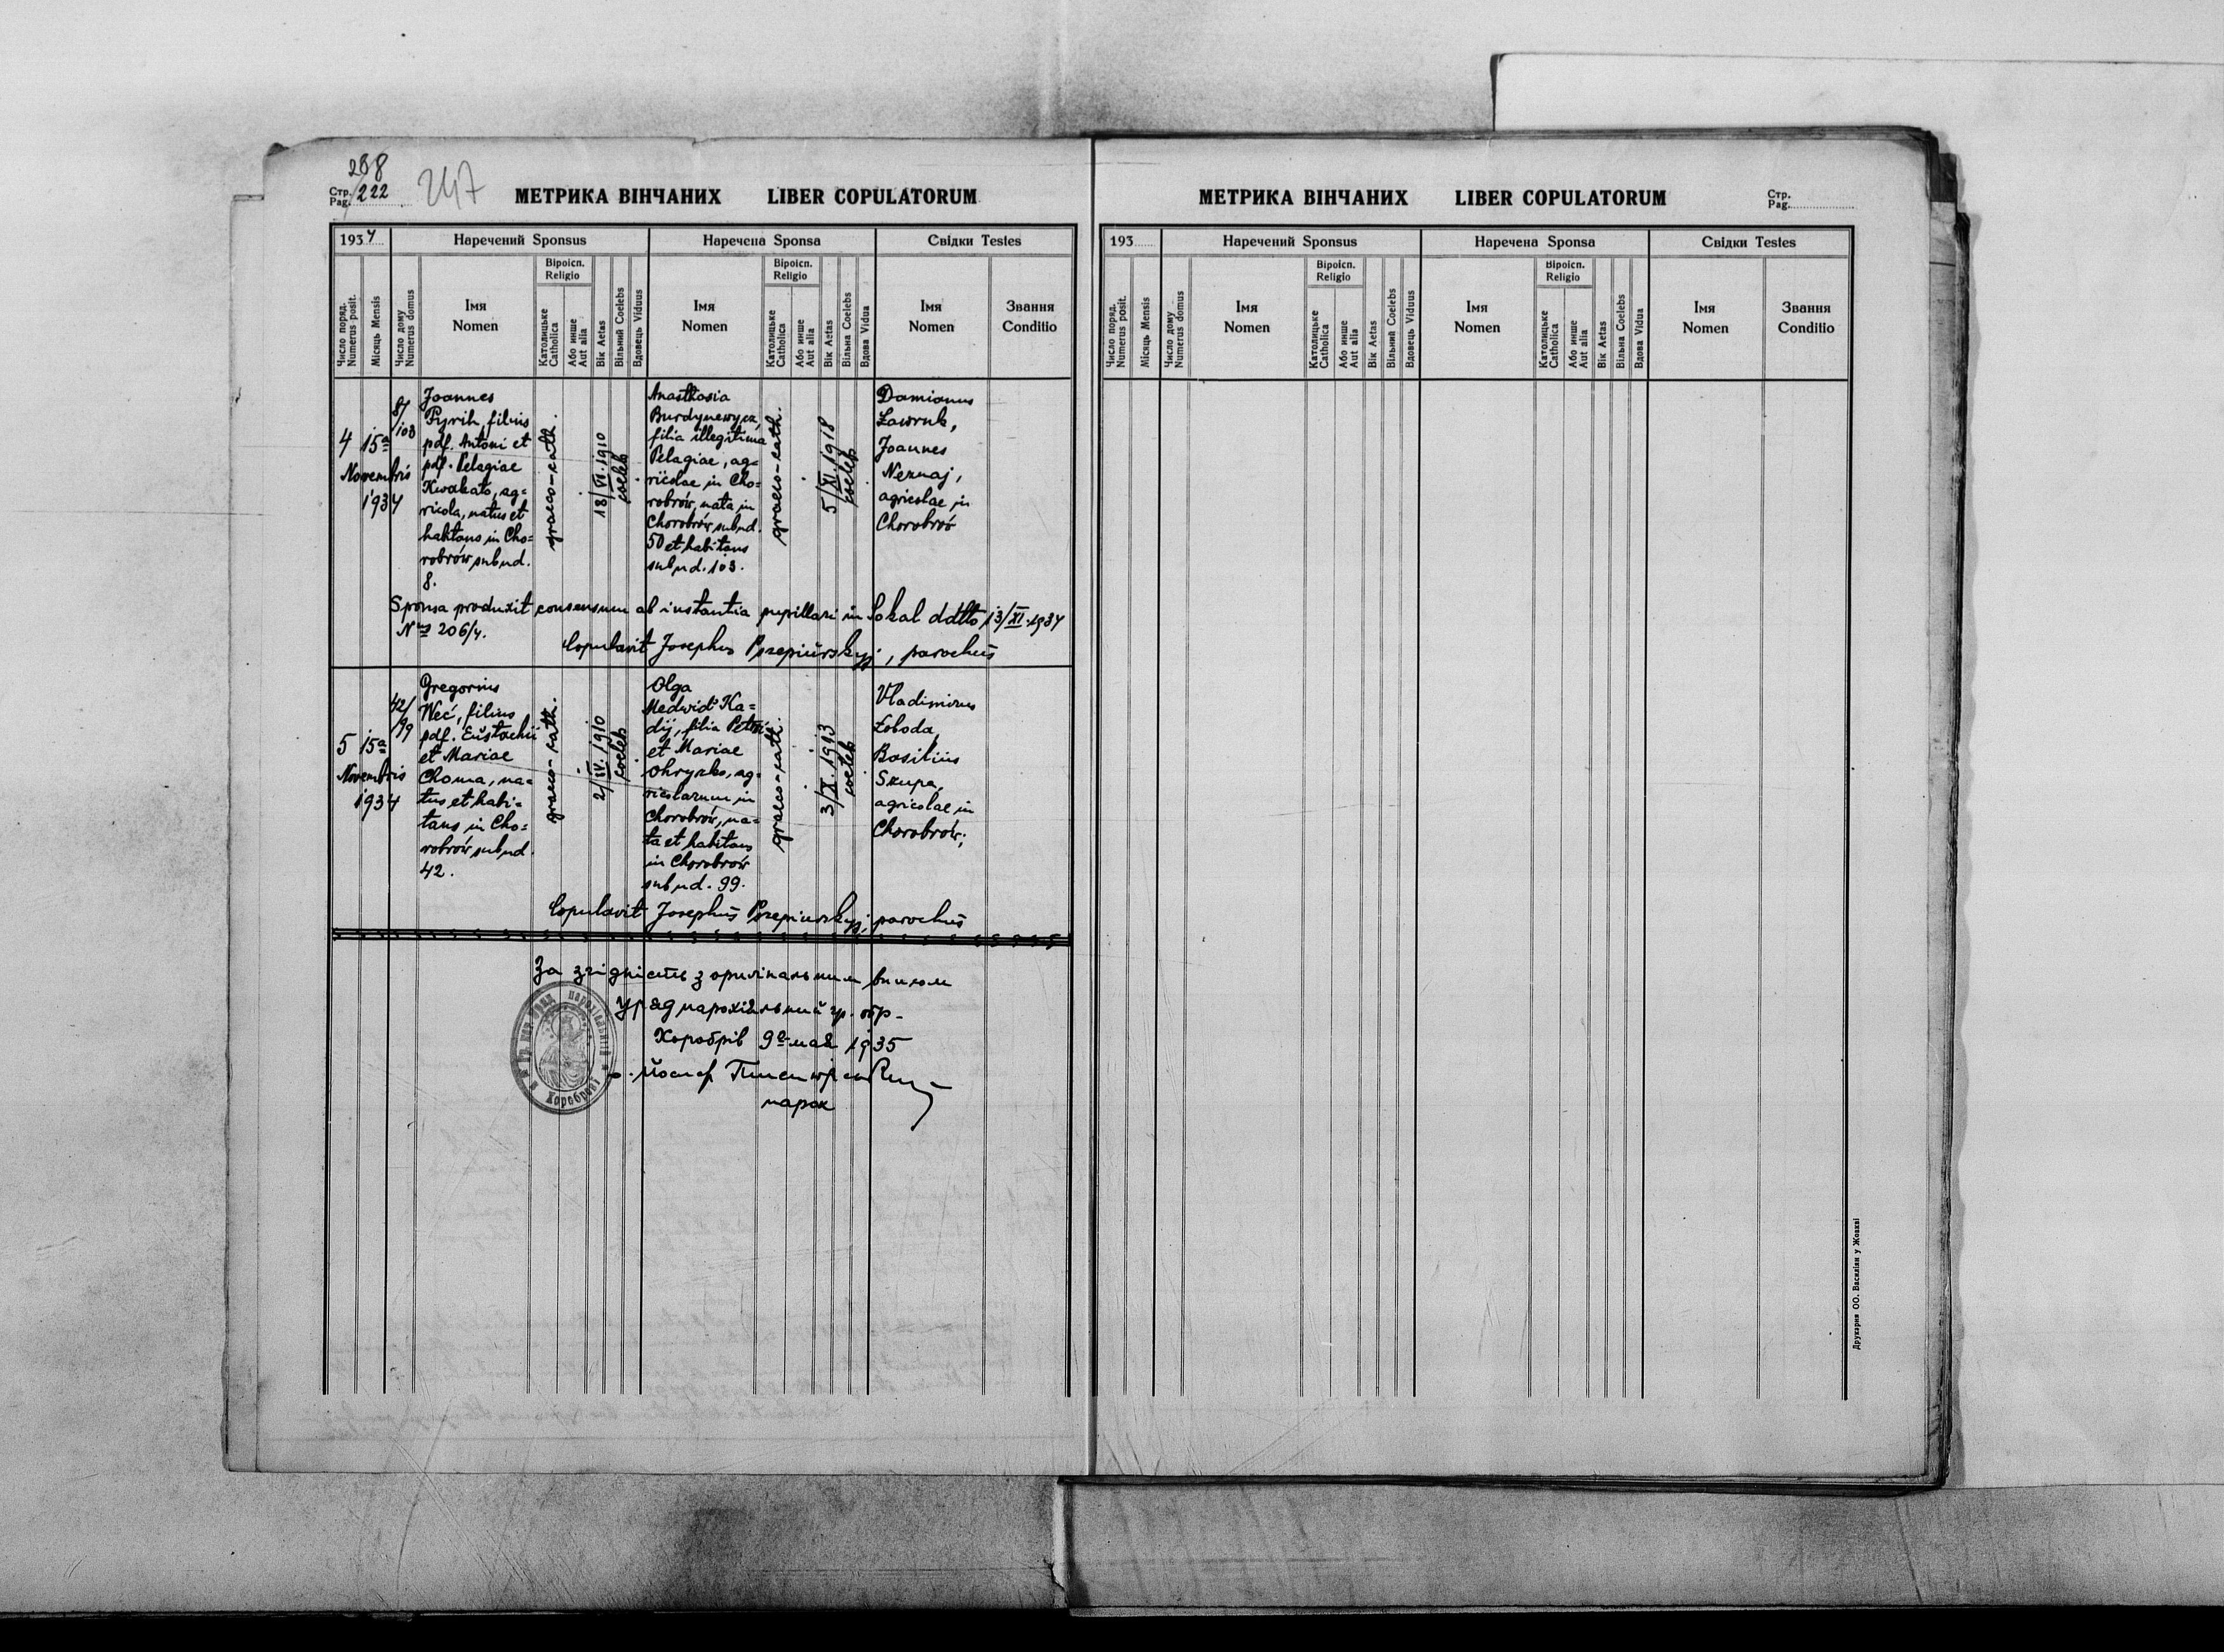 238
Стр. Pag. 222
247
МЕТРИКА ВІНЧАНИХ LIBER COPULATORUM
1934
Наречений Sponsus
Наречена Sponsa
Свідки Testes
Число поряд. Numerus posit.
Місяць Mensis
Число дому Numerus domus
Імя Nomen
Віроісп. Religio
Католицьке Catholica
Або инше Aut alia
Вік Aetas
Вільний Coelebs
Вдовець Viduus
Імя Nomen
Віроісп. Religio
Католицьке Catholica
Або инше Aut alia
Вік Aetas
Вільна Coelebs
Вдова Vidua
Імя Nomen
Звання Conditio
4
15a
Novembris
1934
8/
103
Joannes
Pyrih, filius
pdf. Antoni et
pdf. Pelagiae
Kwakato, ag=
ricola, natus et
habitans in Cho=
robrów sub nd.
8.
graeco-cath.
18/VI.1910
coeleb
Anasthasia
Burdynewycz,
filia illegitima
Pelagiae, ag=
ricolae in Cho=
robrów, nata in
Chorobrów sub nd.
50 et habitans
sub nd. 103.
graeco-cath.
5/XI.1918
coeleb
Damianus
Ławruk,
Joannes
Neznaj,
agricolae in
Chorobrów
Sponsa produxit consensum ab instantia pupillari in Sokal ddtto 13/XI.1934
Nus 206/4.
Copulavit Josephus Pszepiurskyj, parochus
5
15a
Novembris
1934
42/
99
Gregorius
Weć, filius
pdf. Eustachii
et Mariae
Choma, na=
tus et habi=
tans in Cho=
robrów sub nd.
42.
graeco-cath.
2/IV.1910
coeleb
Olga
Medwid' Ka=
dij, filia Petri
et Mariae
Ohryzko, ag=
ricolarum in
Chorobrów, na=
ta et habitans
in Chorobrów
sub nd. 99.
graeco-cath.
3/X.1913
coeleb
Vladimirus
Łoboda,
Basilius
Skupa,
agricolae in
Chorobrów;
Copulavit Josephus Pszepiurskyj, parochus
За згідність з оригінальним
Уряд парохіяльний гр. обр.
Хоробрів 9го мая 1935
о. Йосиф
парох
Хоробрів
МЕТРИКА ВІНЧАНИХ LIBER COPULATORUM
Стр. Pag.
193
Наречений Sponsus
Наречена Sponsa
Свідки Testes
Число поряд. Numerus posit.
Місяць Mensis
Число дому Numerus domus
Імя Nomen
Віроісп. Religio
Католицьке Catholica
Або инше Aut alia
Вік Aetas
Вільний Coelebs
Вдовець Viduus
Імя Nomen
Віроісп. Religio
Католицьке Catholica
Або инше Aut alia
Вік Aetas
Вільна Coelebs
Вдова Vidua
Імя Nomen
Звання Conditio
Друкарня ОО. Василіян у Жовкві